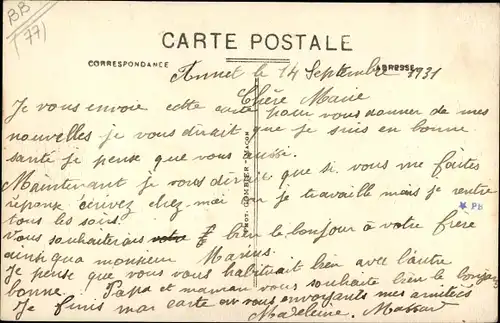 BB
(77)
CARTE POSTALE
CORRESPONDANCE
ADRESSE
Annet le 14 Septembre 1931
Chère Marie
Je vous envoie cette carte pour vous donner de mes
nouvelles je vous dirait que je suis en bonne
santé je pense que vous aussi.
Maintenant je vous dirais que si vous me faites
réponse écrivez chez moi je travaille mais je rentre
tous les soirs.
Vous souhaiterais bien le bonjour à votre frère
ainsi qua monsieur Marius.
Je pense que vous habituait bien avec l'autre
bonne. Papa et maman vous souhaite bien le bonjour
Je finis ma carte en vous envoyants mes amitiés
Madeleine.
PHOT. COMBIER MACON
PB